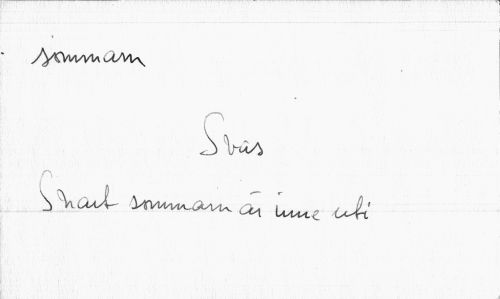 sommam
Svas
Snart sommam är inne uti